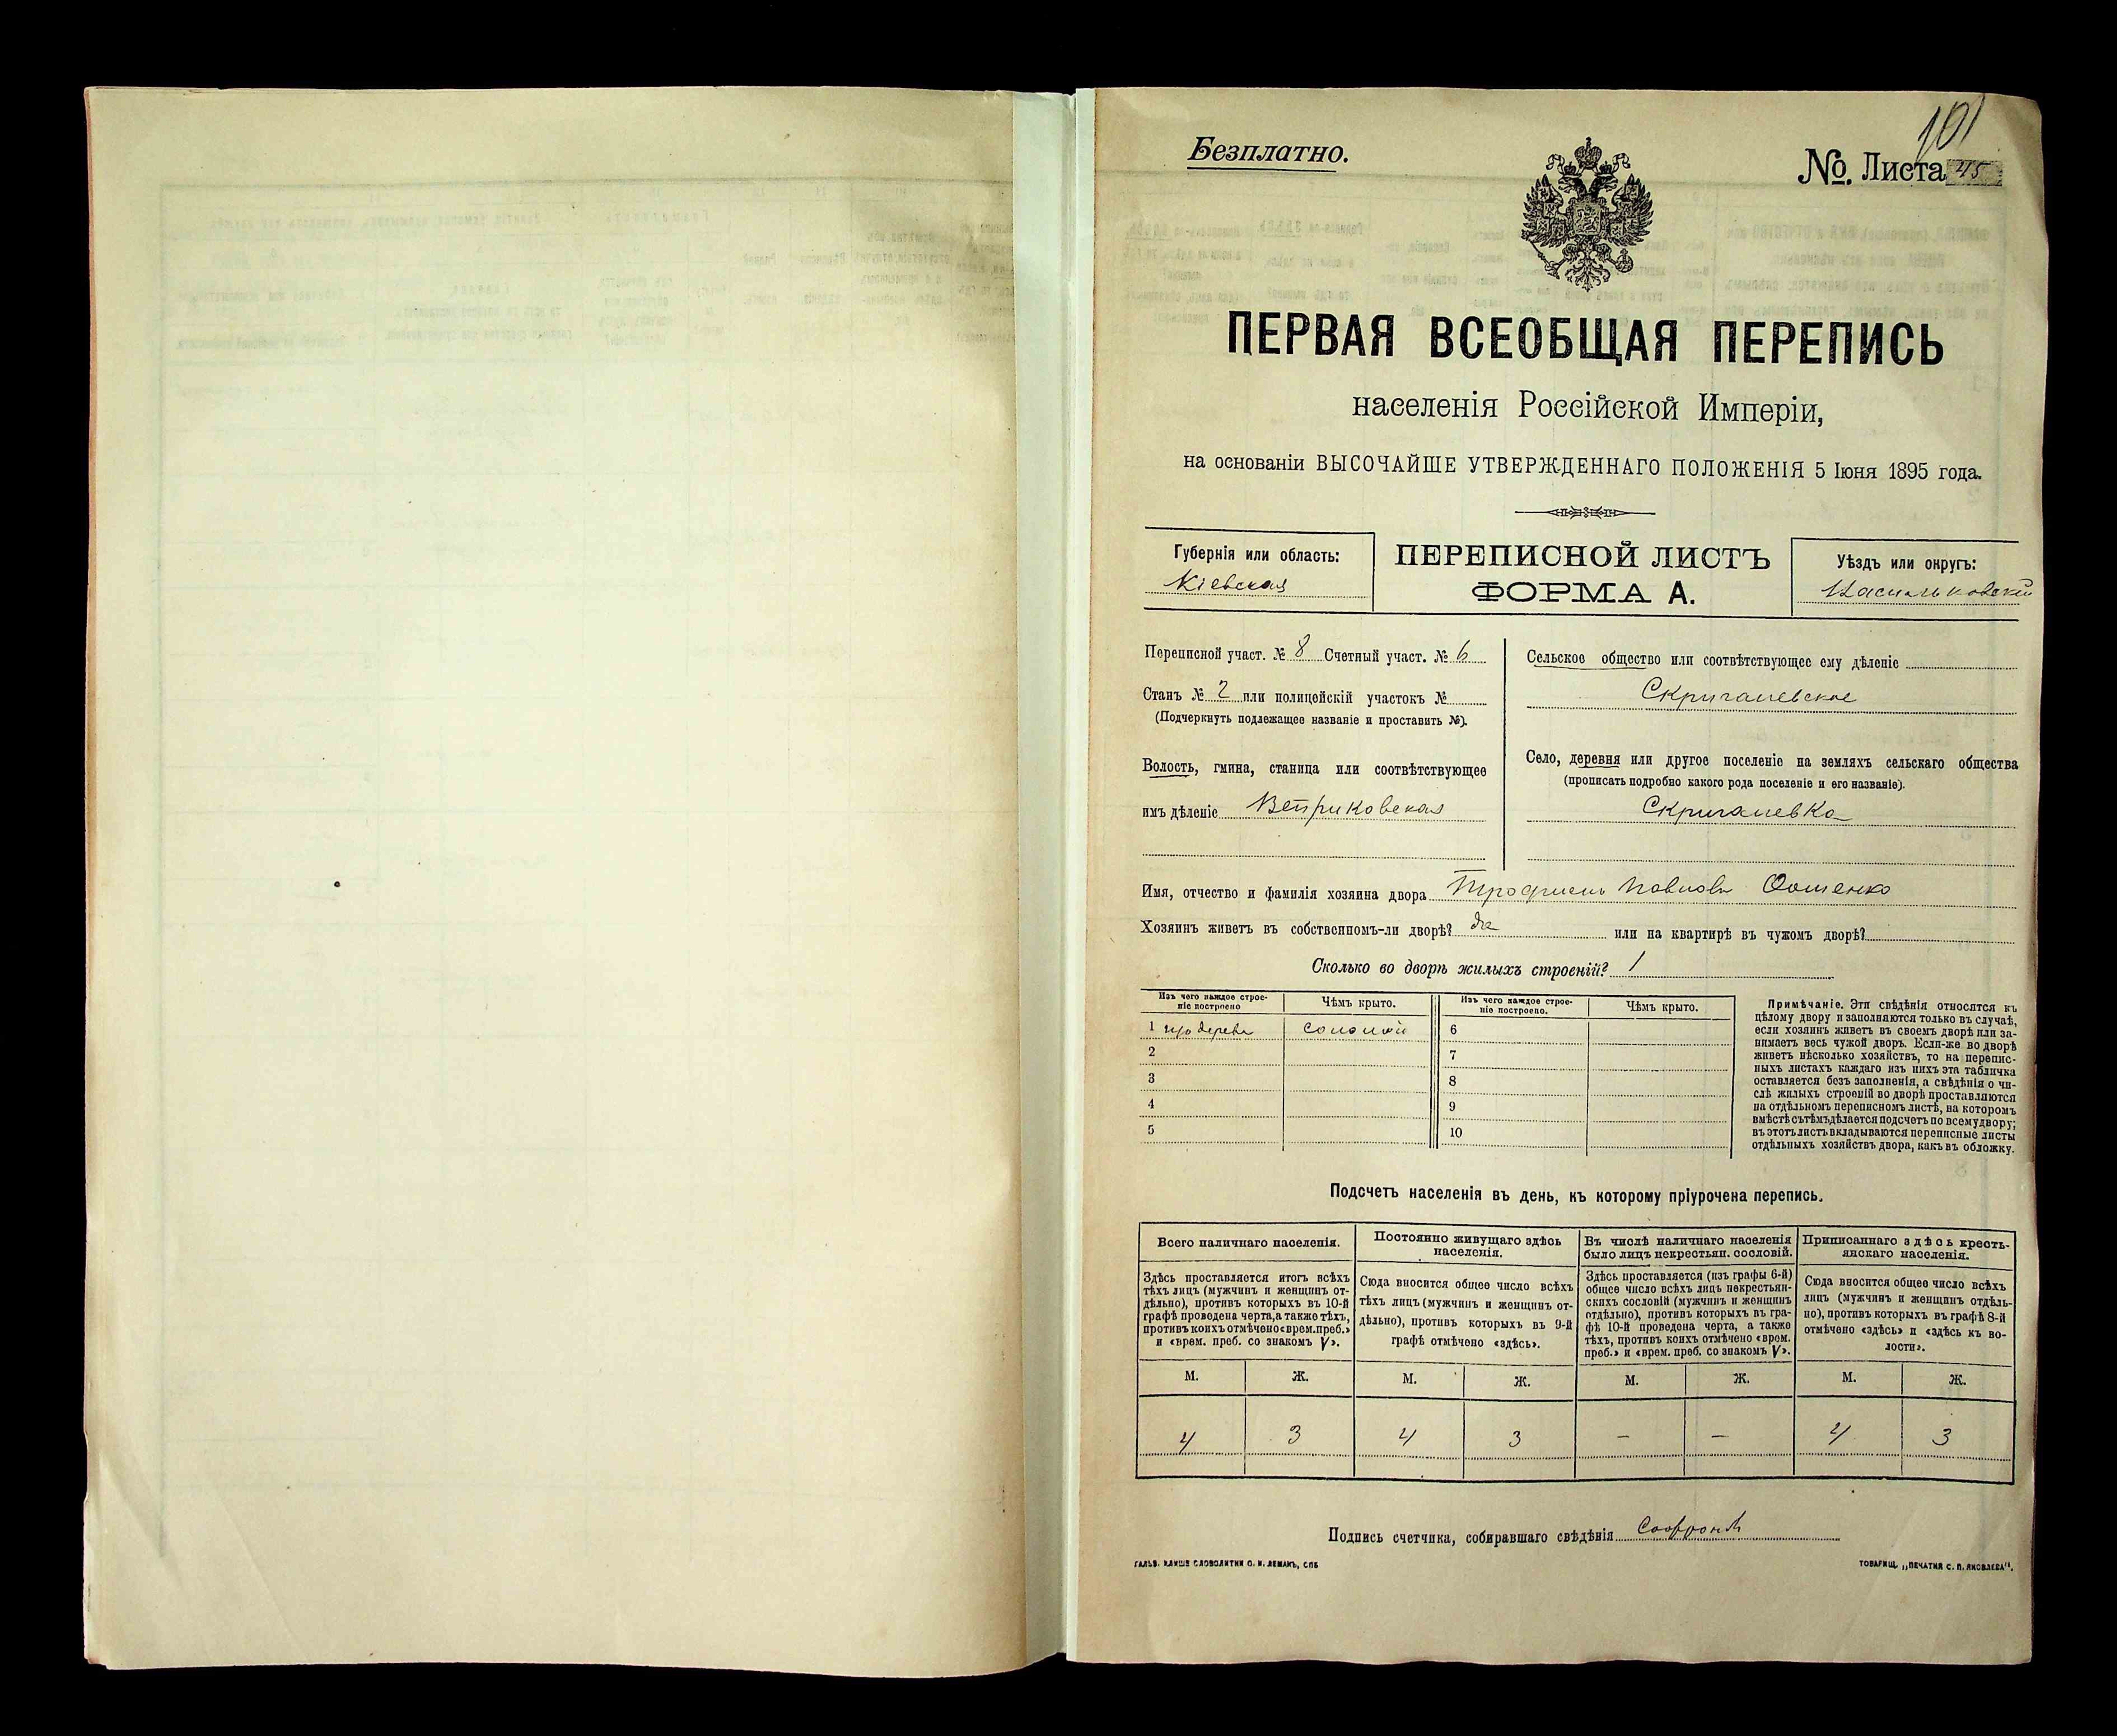 101
Безплатно.
№. Листа 45
ПЕРВАЯ ВСЕОБЩАЯ ПЕРЕПИСЬ
населенія Россійской Имперіи,
на основаніи ВЫСОЧАЙШЕ УТВЕРЖДЕННАГО ПОЛОЖЕНІЯ 5 Іюня 1895 года.
Губернія или область:
Кіевская
ПЕРЕПИСНОЙ ЛИСТЪ
ФОРМА А.
Уѣздъ или округъ:
Васильковскій
Переписной участ. № 8 Счетный участ. № 6
Станъ № 2 или полицейскій участокъ №
(Подчеркнуть подлежащее названіе и проставить №).
Волость, гмина, станица или соотвѣтствующее
имъ дѣленіе Веприковская
Сельское общество или соотвѣтствующее ему дѣленіе
Скригалевское
Село, деревня или другое поселеніе на земляхъ сельскаго общества
(прописать подробно какого рода поселеніе и его названіе).
Скригалевка
Имя, отчество и фамилія хозяина двора Трофимъ Павловъ
Хозяинъ живетъ въ собственномъ-ли дворѣ? да или на квартирѣ въ чужомъ дворѣ?
Сколько во дворѣ жилыхъ строеній? 1
Изъ чего каждое строе-
ніе построено
Чѣмъ крыто.
Изъ чего каждое строе-
ніе построено.
Чѣмъ крыто.
1 изъ дерева соломой 6
2 7
3 8
4 9
5 10
Примѣчаніе. Эти свѣдѣнія относятся къ
цѣлому двору и заполняются только въ случаѣ,
если хозяинъ живетъ въ своемъ дворѣ или за-
нимаетъ весь чужой дворъ. Если-же во дворѣ
живетъ нѣсколько хозяйствъ, то на перепис-
ныхъ листахъ каждаго изъ нихъ эта табличка
оставляется безъ заполненія, а свѣдѣнія о чи-
слѣ жилыхъ строеній во дворѣ проставляются
на отдѣльномъ переписномъ листѣ, на которомъ
вмѣстѣ съ тѣмъ дѣлается подсчетъ по всему двору;
въ этотъ листъ вкладываются переписные листы
отдѣльныхъ хозяйствъ двора, какъ въ обложку.
Подсчетъ населенія въ день, къ которому пріурочена перепись.
Всего наличнаго населенія.
Здѣсь проставляется итогъ всѣхъ
тѣхъ лицъ (мужчинъ и женщинъ от-
дѣльно), противъ которыхъ въ 10-й
графѣ проведена черта, а также тѣхъ,
противъ коихъ отмѣчено «врем. преб.»
и «врем. преб. со знакомъ V».
Постоянно живущаго здѣсь
населенія.
Сюда вносится общее число всѣхъ
тѣхъ лицъ (мужчинъ и женщинъ от-
дѣльно), противъ которыхъ въ 9-й
графѣ отмѣчено «здѣсь».
Въ числѣ наличнаго населенія
было лицъ некрестьян. сословій.
Здѣсь проставляется (изъ графы 6-й)
общее число всѣхъ лицъ некрестьян-
скихъ сословій (мужчинъ и женщинъ
отдѣльно), противъ которыхъ въ гра-
фѣ 10-й проведена черта, а также
тѣхъ, противъ коихъ отмѣчено «врем.
преб.» и «врем. преб. со знакомъ V».
Приписаннаго здѣсь кресть-
янскаго населенія.
Сюда вносится общее число всѣхъ
лицъ (мужчинъ и женщинъ отдѣль-
но), противъ которыхъ въ графѣ 8-й
отмѣчено «здѣсь» и «здѣсь къ во-
лости».
М. Ж. М. Ж. М. Ж. М. Ж.
4 3 4 3 — — 4 3
Подпись счетчика, собиравшаго свѣдѣнія
ГАЛЬВ. КЛИШЕ СЛОВОЛИТНИ О. И. ЛЕМАНЪ, СПБ
ТОВАРИЩ. „ПЕЧАТНЯ С. П. ЯКОВЛЕВА".